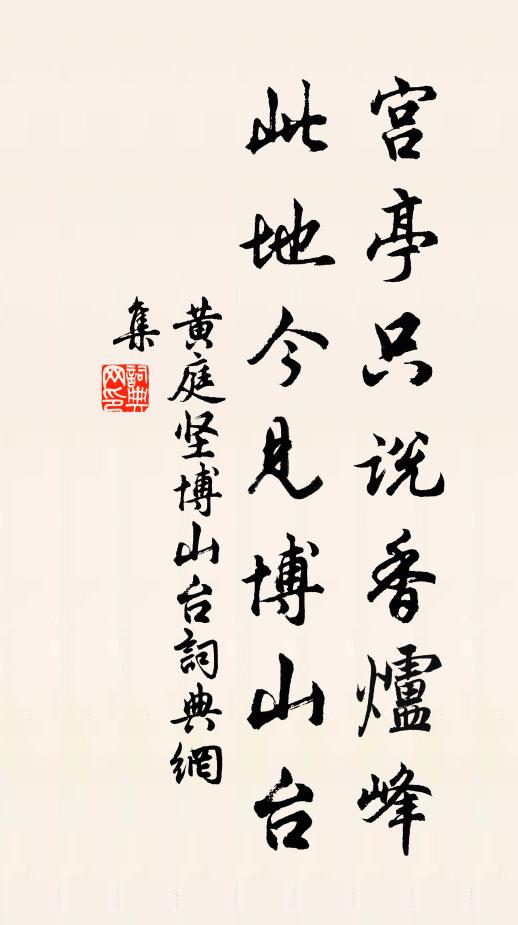 宫亭只说香爐峰
此地今見博山台
黄庭坚博山台詞典網
集
詞典網印